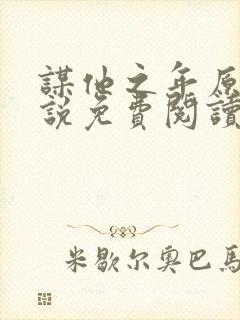 謀他之年原
説免費閱讀
米歇尔奥巴馬